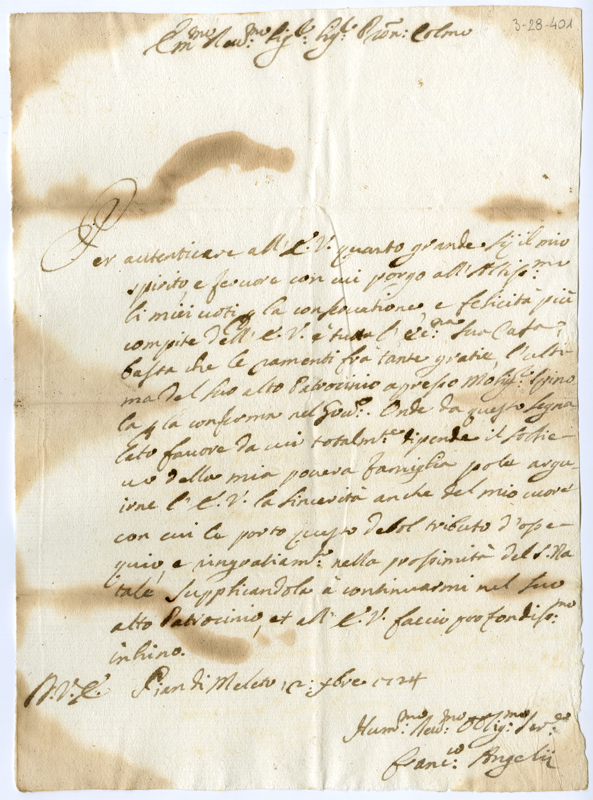 3-28-401
Em:mo Rev:mo Sig:re Sig:re Prõn: Colmo
Per autenticare all'E.V. quanto grande sij il mio
spirito, e fervore con cui porgo all'Altiss:mo
li miei voti p la conservatione, e felicità più
compite dell'E.V. e tutta l'Ecc:ma Sua Casa;
basta che le ramenti fra tante gratie, l'ulti
ma del suo alto Patrocinio apresso Mons:r Spino
la p la conferma nel Gov:o. Onde da questo segna
lato favore da cui totalm:te dipende il sollie-
vo della mia povera famiglia pole argu-
irne l'E.V. la sincerità anche del mio cuore
con cui le porto questo debol tributo d'osse-
quio, e ringratiam:to nella prossimità del S. Na
tale, supplicandola à continuarmi nel suo
alto Patrocinio, et all'E.V. faccio profondiss:mo
inhino.
D.V.E. Pian di Meleto 12: xbre 1724
Hum:mo Rev:mo Oblig:mo Ser:re
Franc:co Angelij